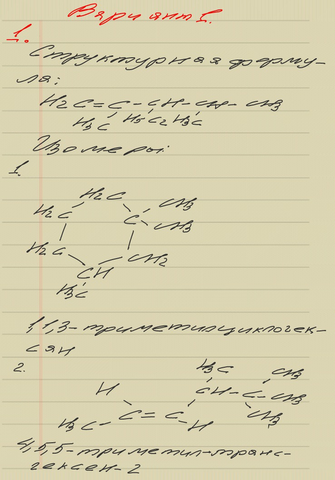 Вариант 1.
1.
Структурная форму-
ля:
H2C=C-CH-CH-CH3
H3C H5C2 H3C
Изомеры:
1.
H2C
H3C CH3
H2C C CH3
H2C CH2
CH
H3C
1,1,3-триметилциклогек-
сян
2.
H3C CH3
H CH-C-CH3
CH3
H3C C=C H
4,5,5-триметил-транс-
гексен-2